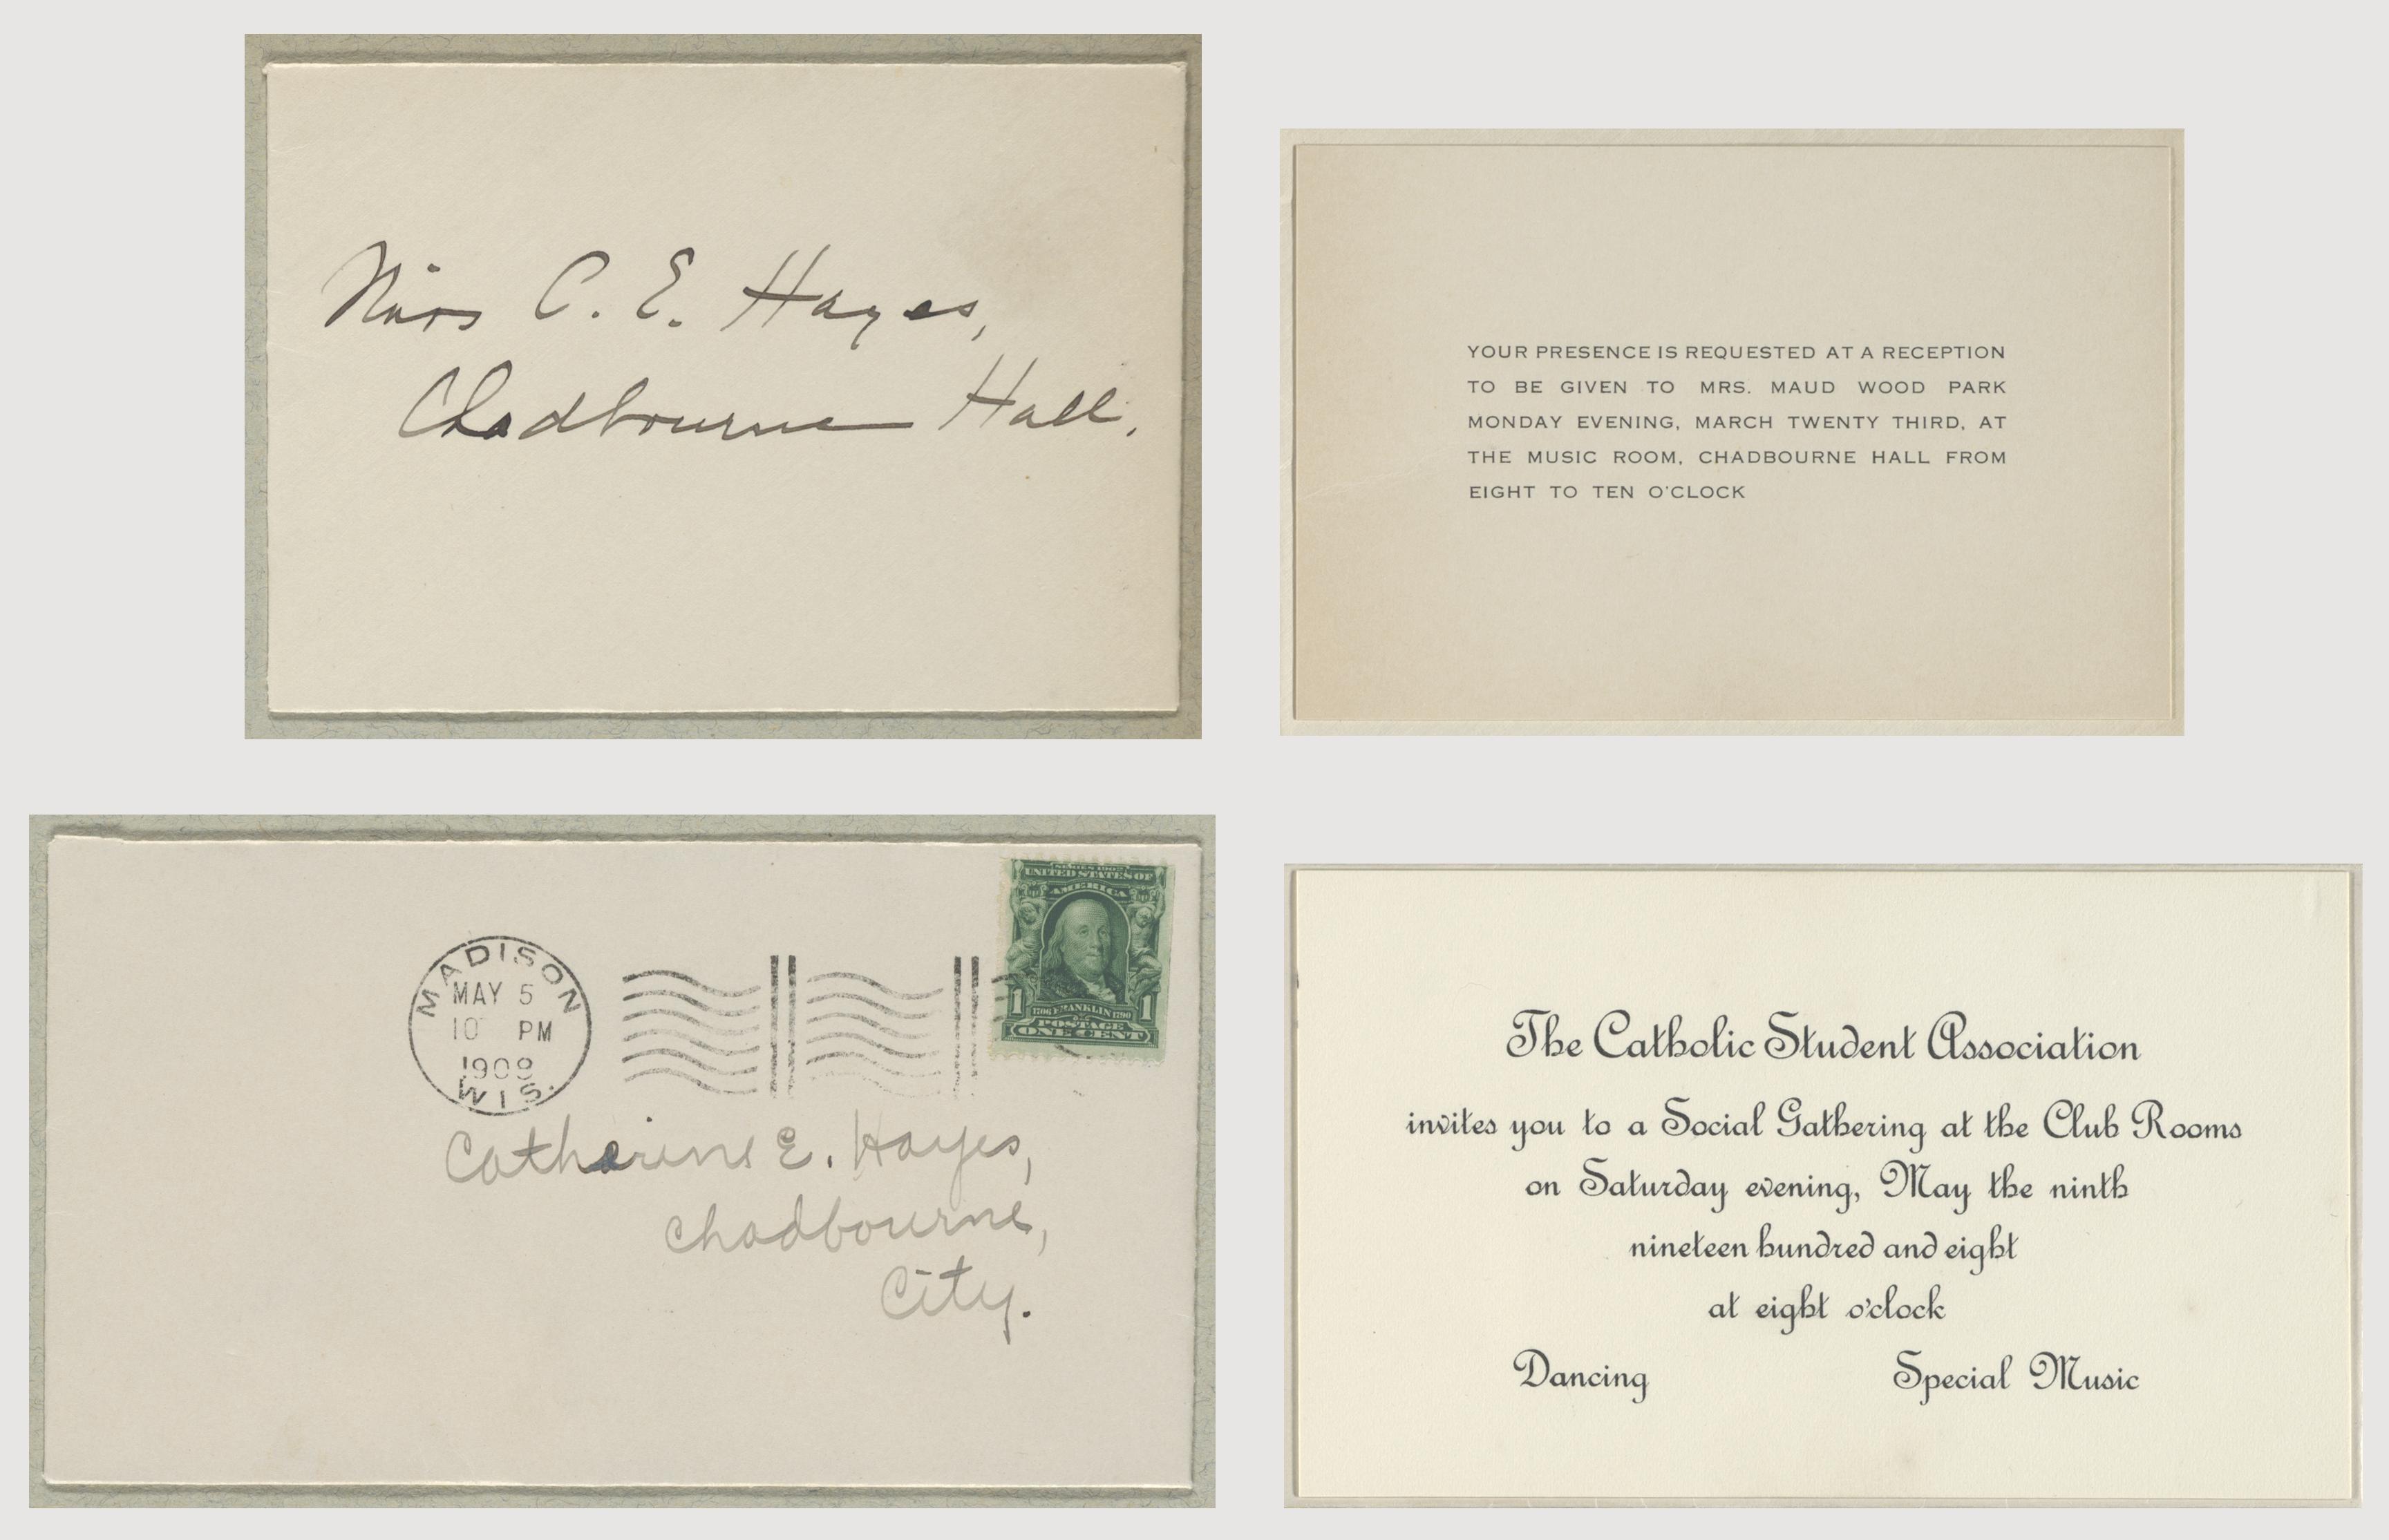 Miss C. E. Hayes,
Chadbourne Hall.
YOUR PRESENCE IS REQUESTED AT A RECEPTION
TO BE GIVEN TO MRS. MAUD WOOD PARK
MONDAY EVENING, MARCH TWENTY THIRD, AT
THE MUSIC ROOM, CHADBOURNE HALL FROM
EIGHT TO TEN O'CLOCK
SERIES 1902
UNITED STATES OF
AMERICA
1 1
1706 FRANKLIN 1790
POSTAGE
ONE CENT
MADISON
MAY 5
10 PM
1908
WIS.
Catherine E. Hayes,
Chadbourne,
City.
The Catholic Student Association
invites you to a Social Gathering at the Club Rooms
on Saturday evening, May the ninth
nineteen hundred and eight
at eight o'clock
Dancing Special Music